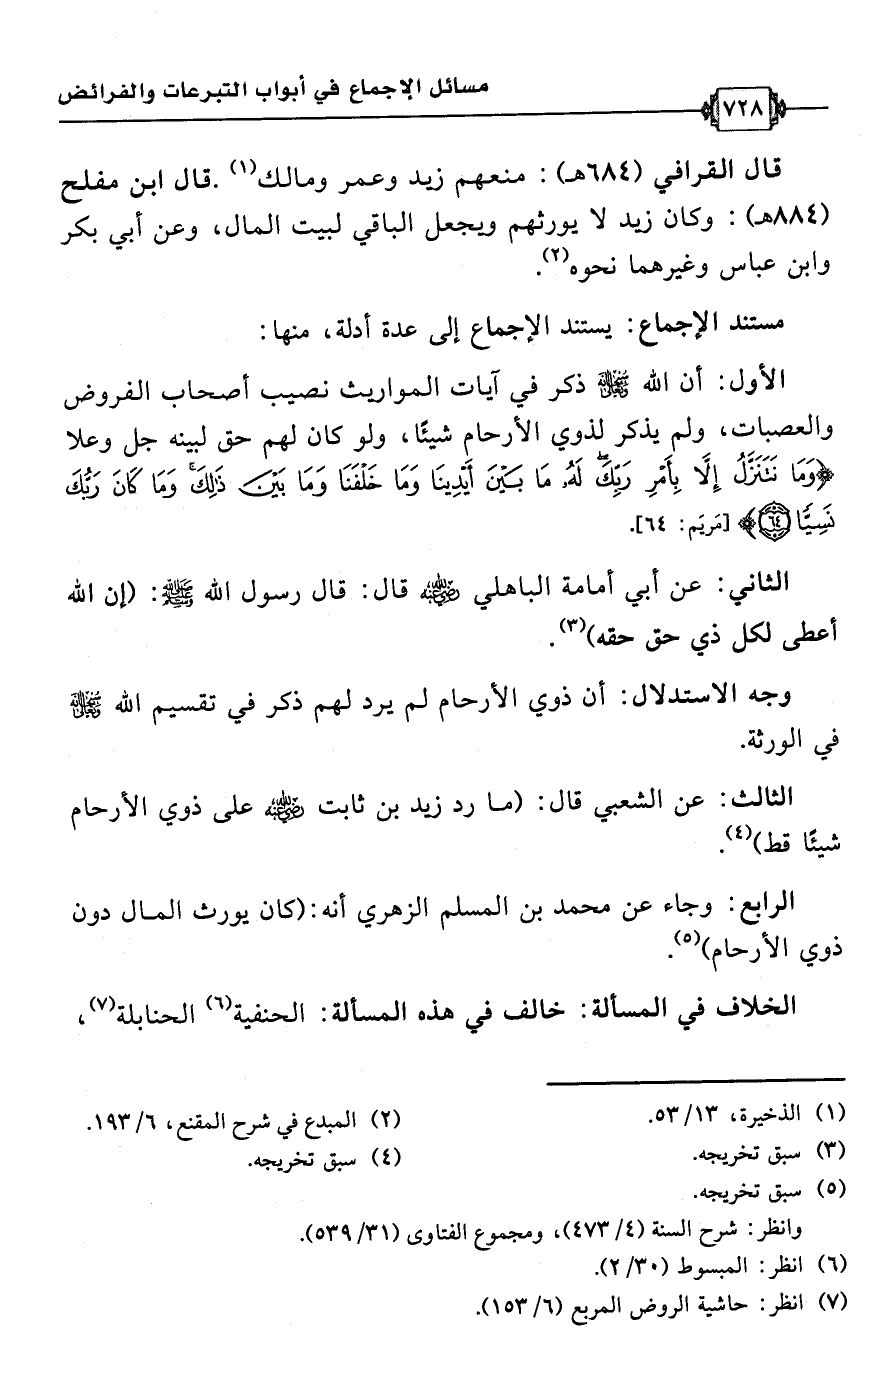 مسائل الإجماع في أبواب التبرعات والفرائض
٧٢٨
قال القرافي (٦٨٤هـ) : منعهم زيد وعمر ومالك(١) .قال ابن مفلح
(٨٨٤هـ) : وكان زيد لا يورثهم ويجعل الباقي لبيت المال، وعن أبي بكر
وابن عباس وغيرهما نحوه(٢).
مستند الإجماع: يستند الإجماع إلى عدة أدلة، منها:
الأول: أن الله ﷾ ذكر في آيات المواريث نصيب أصحاب الفروض
والعصبات، ولم يذكر لذوي الأرحام شيئًا، ولو كان لهم حق لبينه جل وعلا
﴿وَمَا نَتَنَزَّلُ إِلَّا بِأَمْرِ رَبِّكَ ۖ لَهُۥ مَا بَيْنَ أَيْدِينَا وَمَا خَلْفَنَا وَمَا بَيْنَ ذَٰلِكَ ۚ وَمَا كَانَ رَبُّكَ
نَسِيًّا ﴿٦٤﴾﴾ [مَريَم: ٦٤].
الثاني: عن أبي أمامة الباهلي ﵁ قال: قال رسول الله ﷺ: (إن الله
أعطى لكل ذي حق حقه)(٣).
وجه الاستدلال: أن ذوي الأرحام لم يرد لهم ذكر في تقسيم الله ﷾
في الورثة.
الثالث: عن الشعبي قال: (ما رد زيد بن ثابت ﵁ على ذوي الأرحام
شيئًا قط)(٤).
الرابع: وجاء عن محمد بن المسلم الزهري أنه:(كان يورث المال دون
ذوي الأرحام)(٥).
الخلاف في المسألة: خالف في هذه المسألة: الحنفية(٦) الحنابلة(٧)،
(١) الذخيرة، ١٣/ ٥٣. (٢) المبدع في شرح المقنع، ٦/ ١٩٣.
(٣) سبق تخريجه. (٤) سبق تخريجه.
(٥) سبق تخريجه.
وانظر: شرح السنة (٤/ ٤٧٣)، ومجموع الفتاوى (٣١/ ٥٣٩).
(٦) انظر: المبسوط (٣٠/ ٢).
(٧) انظر: حاشية الروض المربع (٦/ ١٥٣).